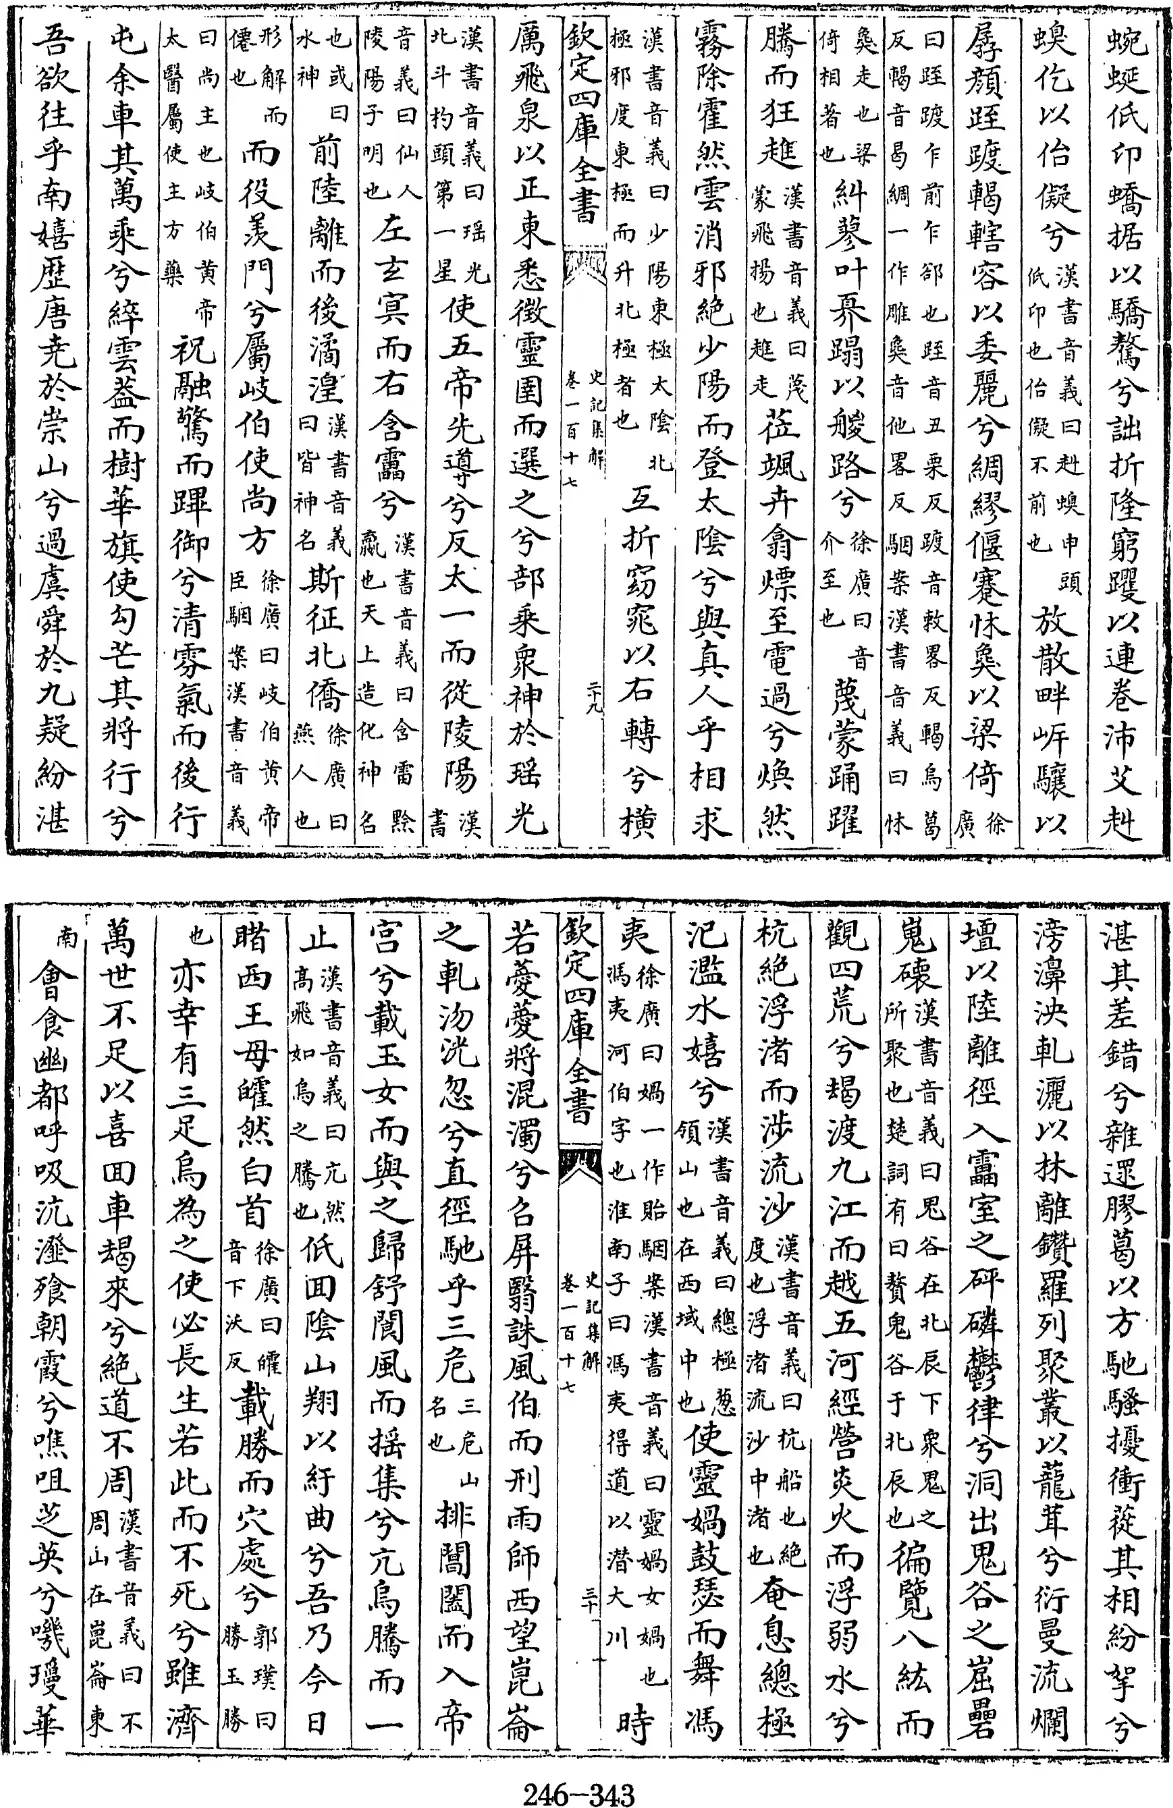 蜿蜒低卬蟜据以驕驁兮詘折隆窮躩以連巻沛艾赳
螑仡以佁儗兮漢書音義曰赳螑申頭低卬也佁儗不前也放散畔岸驤以
孱顔跮踱輵轄容以委麗兮綢繆偃蹇怵㚟以梁倚徐廣
曰跮踱乍前乍郤也跮音丑栗反踱音敕畧反輵烏葛反輵音曷綢一作雕㚟音他畧反駰案漢書音義曰怵
㚟走也梁倚相著也糾蓼叶奡蹋以艐路兮徐廣曰音介至也蔑蒙踊躍
騰而狂趡漢書音義曰蔑蒙飛揚也趡走莅颯卉翕熛至電過兮煥然
霧除霍然雲消邪絶少陽而登太陰兮與真人乎相求
漢書音義曰少陽東極太陰北極邪度東極而升北極者也互折窈窕以右轉兮橫
欽定四庫全書 史記集解 巻一百十七 二十九
厲飛泉以正東悉徴靈圉而選之兮部乘衆神於瑶光
漢書音義曰瑶光北斗杓頭第一星使五帝先導兮反太一而從陵陽漢書
音義曰仙人陵陽子明也左玄冥而右含靁兮漢書音義曰含雷黔羸也天上造化神名
也或曰水神前陸離而後潏湟漢書音義曰皆神名斯征北僑徐廣曰燕人也
形解而僊也而役羨門兮屬岐伯使尚方徐廣曰岐伯黄帝臣駰案漢書音義
曰尚主也岐伯黄帝太醫屬使主方藥祝融驚而蹕御兮清雰氣而後行
屯余車其萬乘兮綷雲葢而樹華旗使勾芒其將行兮
吾欲往乎南嬉歴唐尭於崇山兮過虞舜於九疑紛湛
湛其差錯兮雜遝膠葛以方馳騷擾衝蓯其相紛挐兮
滂濞泱軋灑以林離鑽羅列聚叢以蘢茸兮衍曼流爛
壇以陸離徑入靁室之砰磷鬱律兮洞出鬼谷之崫礨
嵬磈漢書音義曰鬼谷在北辰下衆鬼之所聚也楚詞有曰贅鬼谷于北辰也徧覽八紘而
觀四荒兮朅渡九江而越五河經營炎火而浮弱水兮
杭絶浮渚而涉流沙漢書音義曰杭船也絶度也浮渚流沙中渚也奄息總極
氾濫水嬉兮漢書音義曰總極葱領山也在西域中也使靈媧鼓瑟而舞馮
夷徐廣曰媧一作貽駰案漢書音義曰靈媧女媧也馮夷河伯字也淮南子曰馮夷得道以潜大川時
欽定四庫全書 史記集解 巻一百十七 三十
若薆薆將混濁兮召屏翳誅風伯而刑雨師西望崑崙
之軋沕洸忽兮直徑馳乎三危三危山名也排閶闔而入帝
宫兮載玉女而與之歸舒閬風而揺集兮亢烏騰而一
止漢書音義曰亢然高飛如烏之騰也低囬隂山翔以紆曲兮吾乃今日
睹西王母㿥然白首徐廣曰㿥音下沃反載勝而穴處兮郭璞曰勝玉勝
也亦幸有三足烏為之使必長生若此而不死兮雖濟
萬世不足以喜囬車朅來兮絶道不周漢書音義曰不周山在崑崙東
南會食幽都呼吸沆瀣飱朝霞兮噍咀芝英兮嘰瓊華
246-343